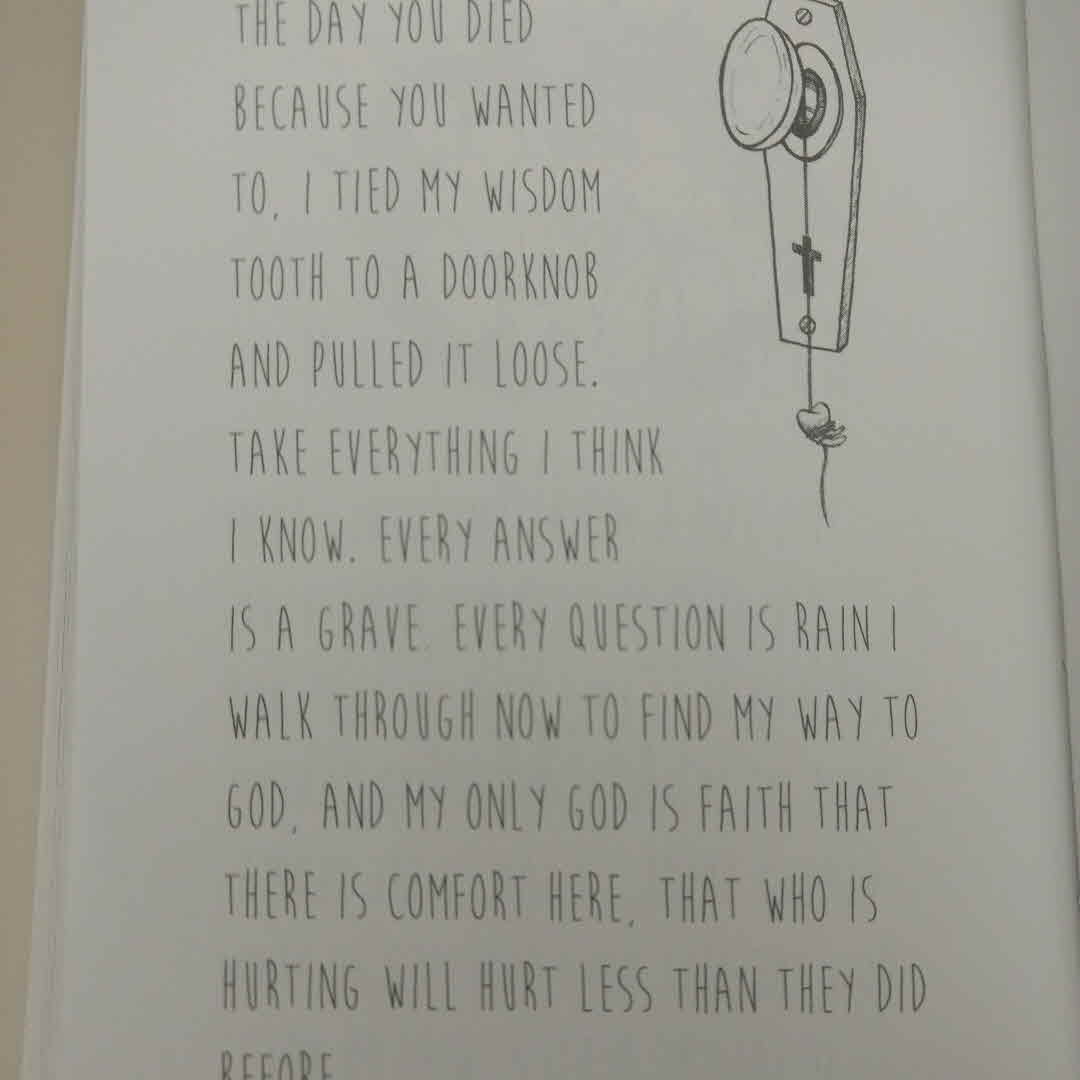 THE DAY YOU DIED
BECAUSE YOU WANTED
TO, I TIED MY WISDOM
TOOTH TO A DOORKNOB
AND PULLED IT LOOSE.
TAKE EVERYTHING I THINK
I KNOW. EVERY ANSWER
IS A GRAVE. EVERY QUESTION IS RAIN I
WALK THROUGH NOW TO FIND MY WAY TO
GOD, AND MY ONLY GOD IS FAITH THAT
THERE IS COMFORT HERE, THAT WHO IS
HURTING WILL HURT LESS THAN THEY DID
BEFORE